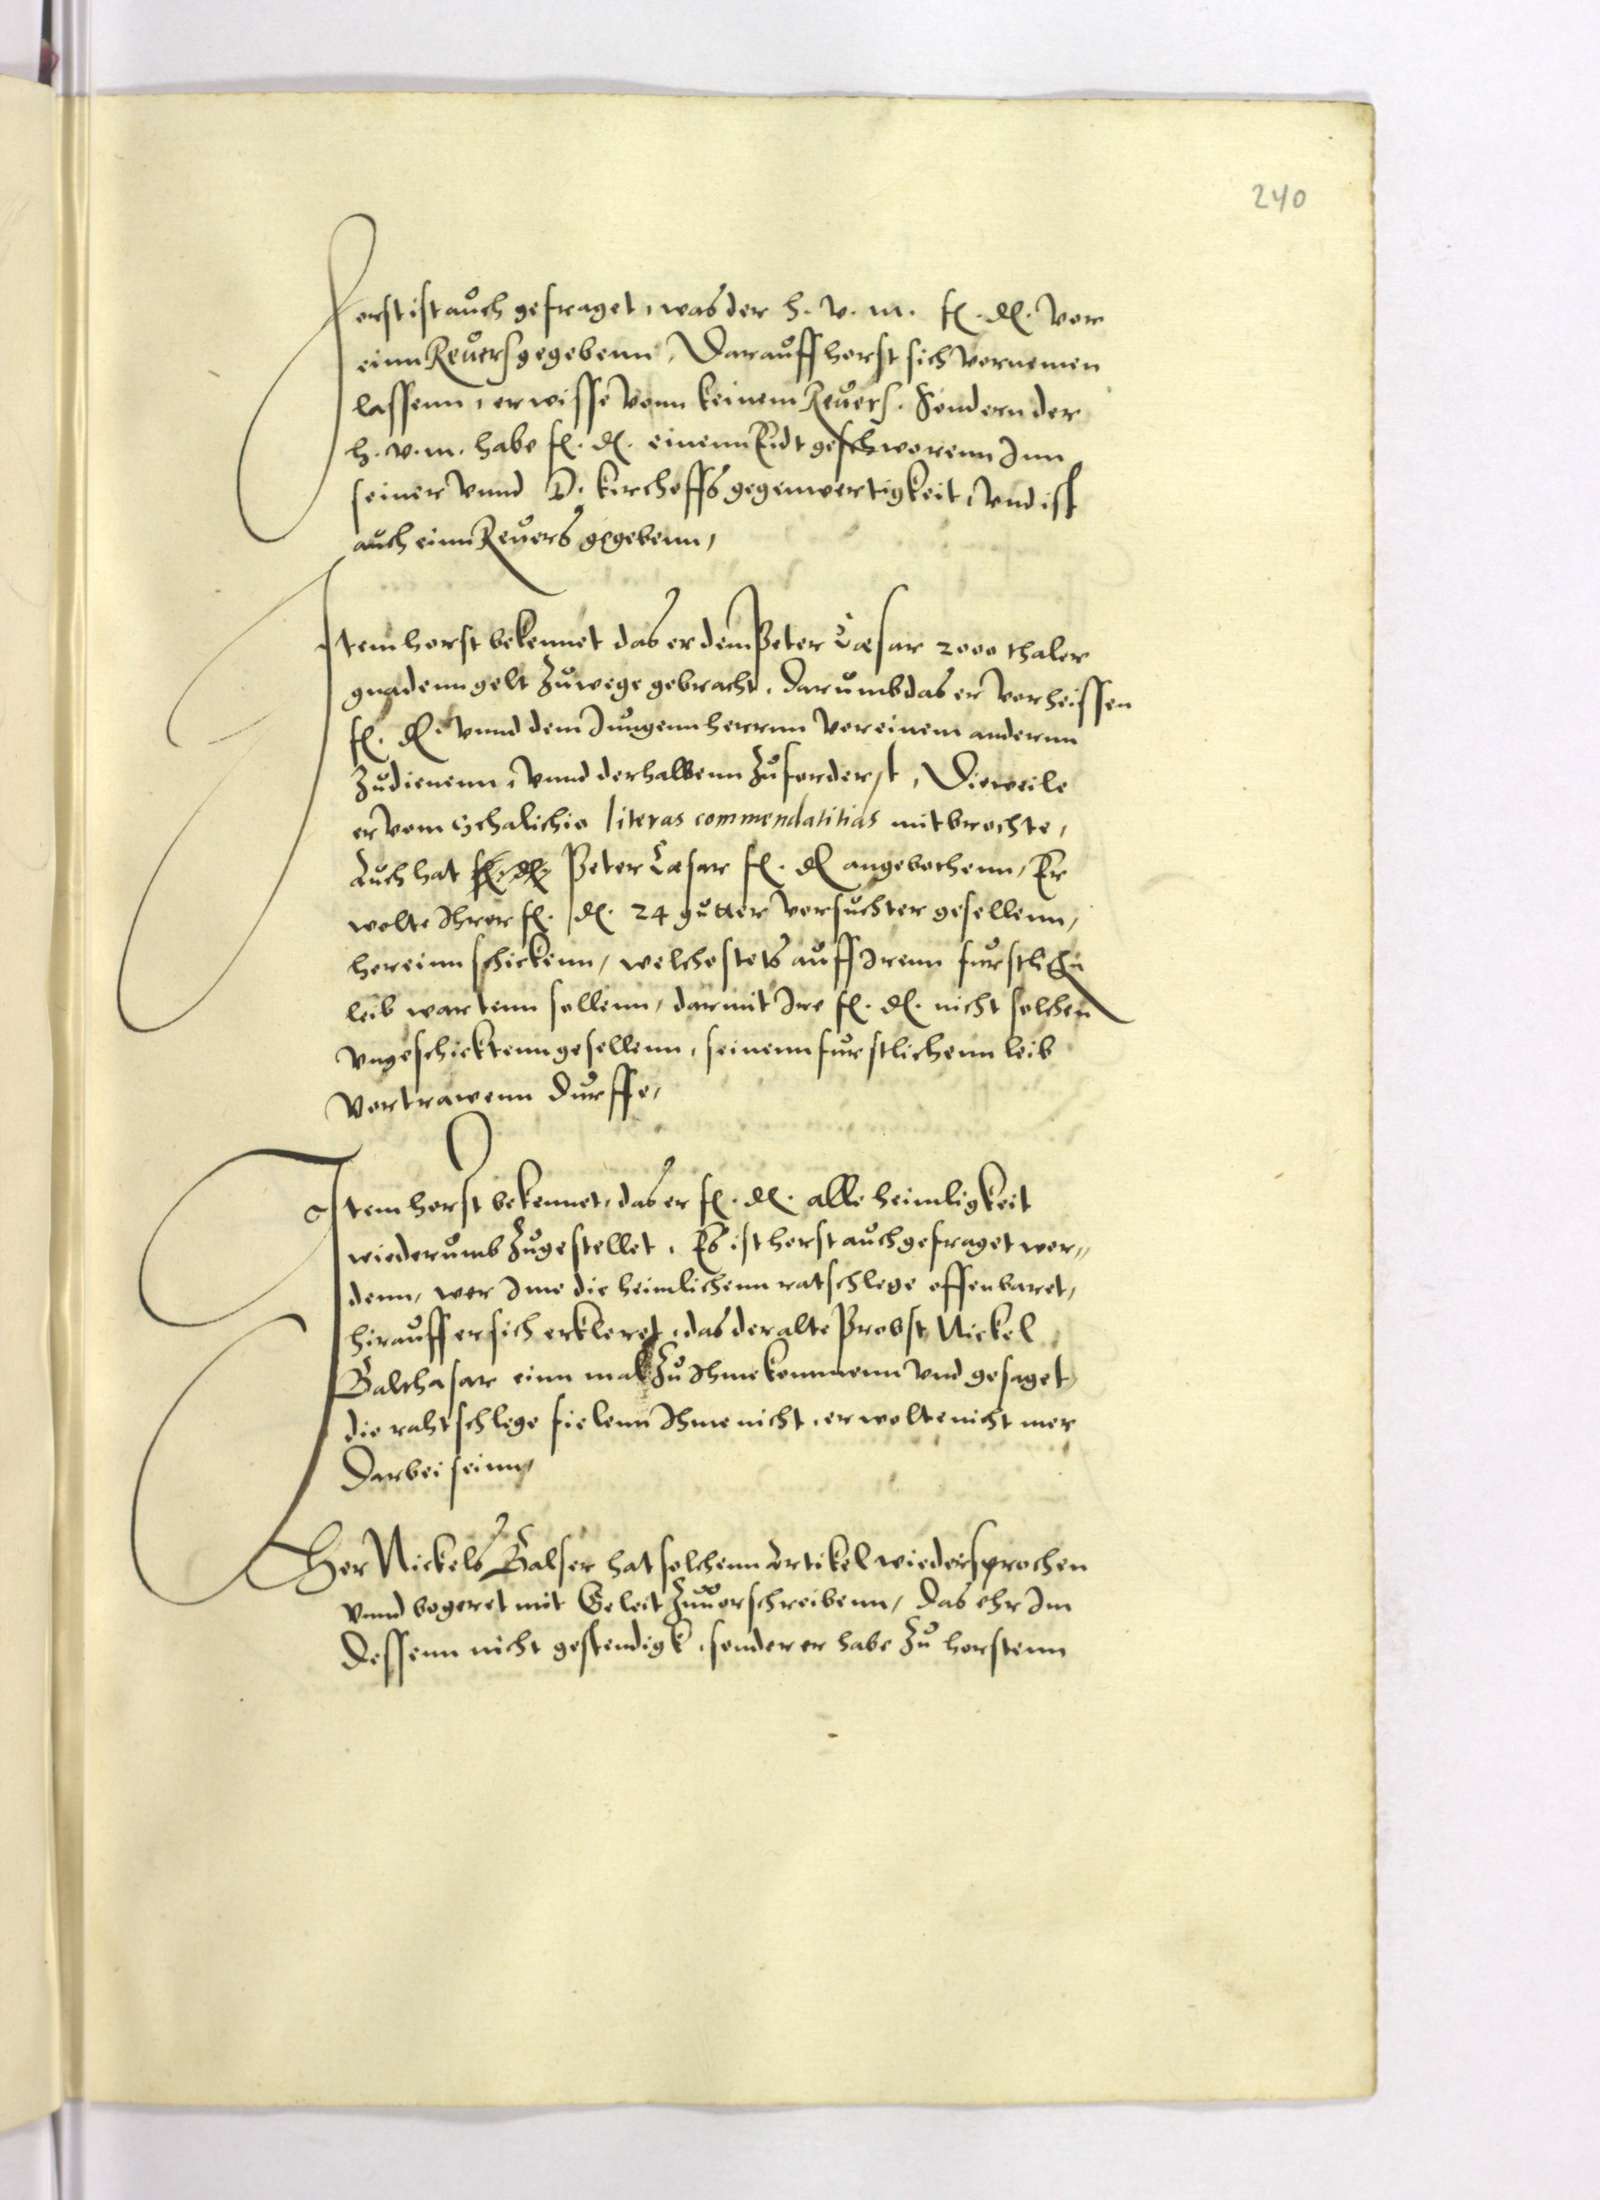 240
Horst ist auch gefraget, was der h. v. m. f. d. vor
einn Reuers gegebenn, Darauff horst sich vornemen
lassenn, er wisse vonn keinem Reuers. Sondern der
h. v. m. habe f. d. einenn Eidt geschworenn Inn
seiner vnnd D. Kirchoffs gegenwertigkeit, vnd ist
auch einn Reuers gegebenn,
Item horst bekennet das er dem Peter Cæsar 2000 thaler
gnadenngelt zuwege gebracht, darumb das er vorheissen
f. d. vnnd dem Jungenn herrnn vor einem andernn
zudienenn, vnnd derhalbenn zuforderst, Dieweile
er vom Schalichio literas commendatitias mitbrochte,
Auch hat f. d. Peter Cæsar f. d. angebothenn, Er
wolte Ihrer f. d. 24 gutter vorsuchter gesellenn,
hereinn schickenn, welche stets auff Irenn furstlichen
leib wartenn sollenn, darmit Ire f. d. nicht solchen
vngeschicktenn gesellenn, seinenn furstlichenn leib
vortrawenn durffe,
Item horst bekennet, das er f. d. alle heimligkeit
wiederumb zugestellet. Es ist horst auch gefraget wor¬
denn, wer Ime die heimlichenn ratschlege offenbaret,
hirauff er sich erkleret, das der alte Probst Nickel
Balthasar einn mal zu Ihme kommenn vnd gesaget,
die rahtschlege fielenn Ihme nicht, er wolte nicht mer
darbei seinn,
Her Nickels Balser hat solchenn Artikel wiedersprochen
vnnd begeret mit Geleit zuuorschreibenn, das ehr Im
dessenn nicht gestendigk, sonder er habe zu horstenn